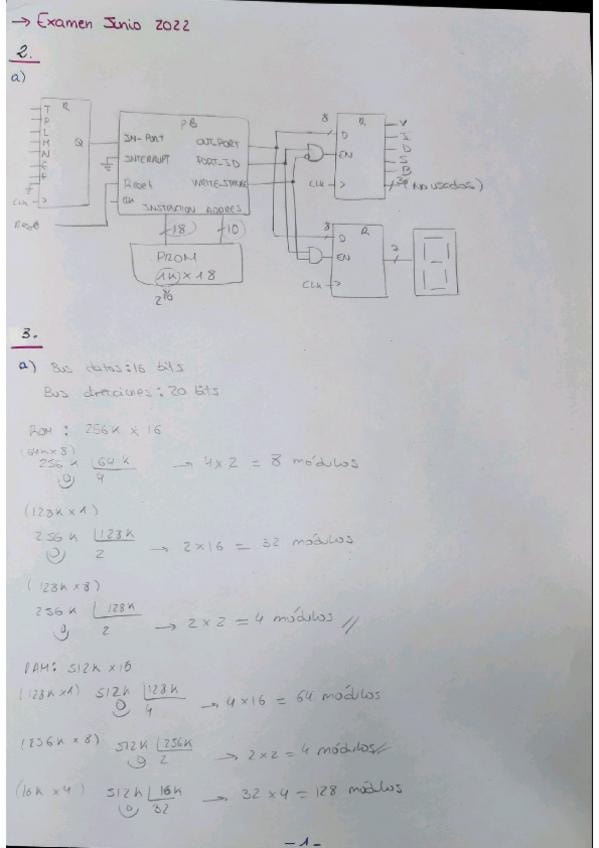 → Examen Junio 2022
2.
a)
R
T
P
L
M
N
E
F
Q
Clk
Reset
PB
IN-PORT
INTERRUPT
Reset
Clk
OUT_PORT
PORT_ID
WRITE_STROBE
INSTRUCTION ADDRES
18
10
PROM
1K x 18
8
R
D
EN
Clk
V
I
D
S
B
(NO USADOS)
8
R
D
EN
CLK
7
3.
a) Bus datos: 16 bits
Bus direcciones: 20 bits
ROM: 256K x 16
(64K x 8)
256K 64K → 4 x 2 = 8 módulos
0 4
(128K x 1)
256K 128K
0 2 → 2 x 16 = 32 módulos
(128K x 8)
256K 128K
0 2 → 2 x 2 = 4 módulos //
RAM: 512K x 16
(128K x 1) 512K 128K
0 4 → 4 x 16 = 64 módulos
(256K x 8) 512K 256K
0 2 → 2 x 2 = 4 módulos //
(16K x 4) 512K 16K → 32 x 4 = 128 módulos
0 32
- 1 -